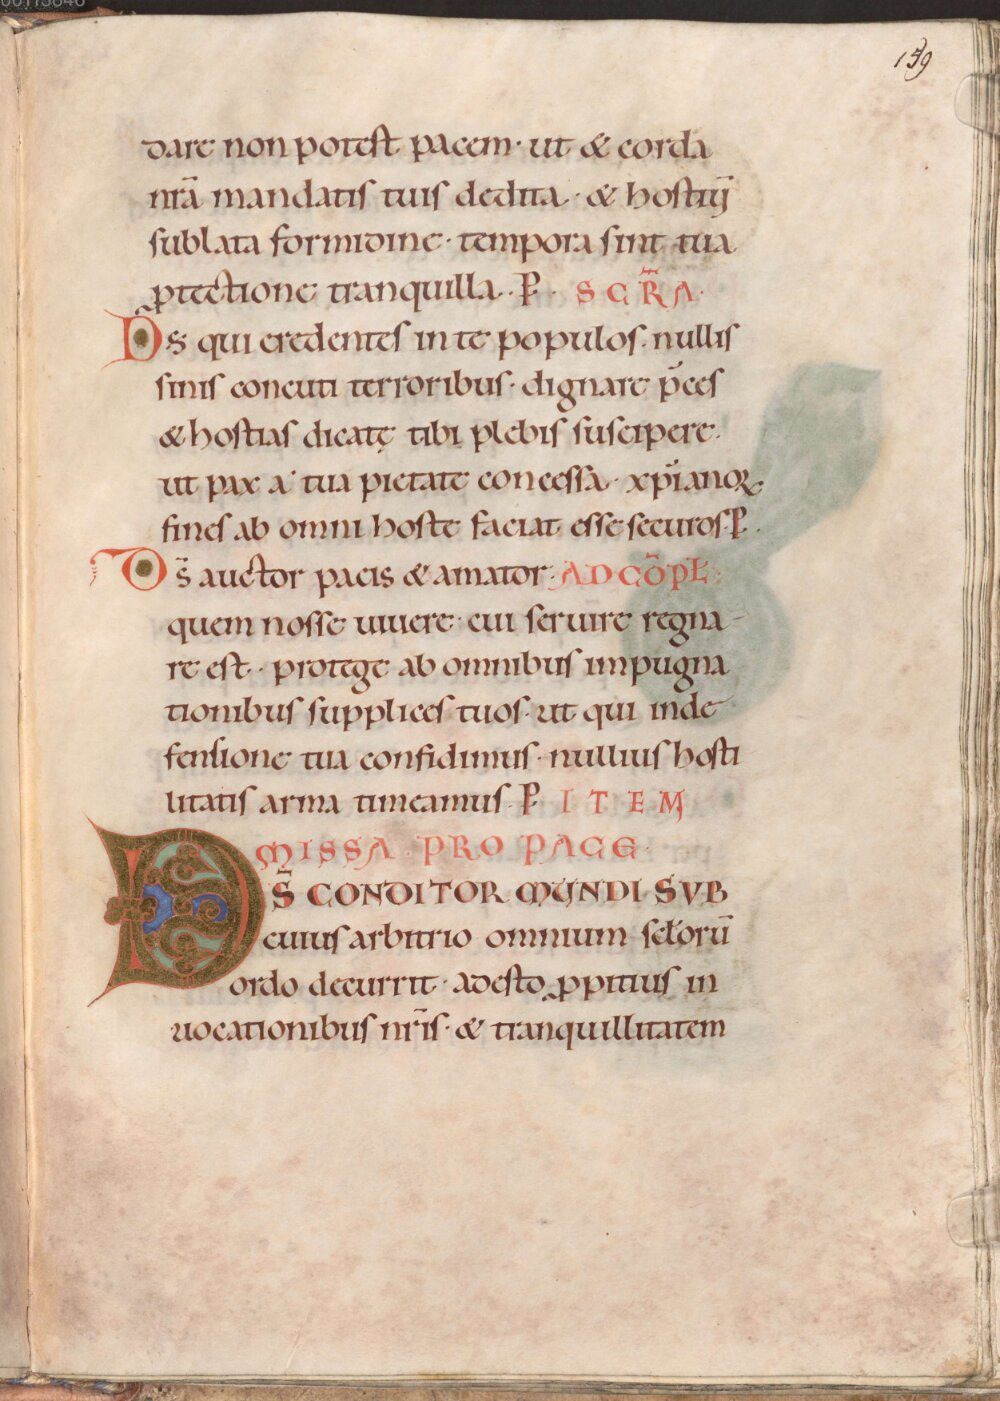 159
dare non potest pacem· ut & corda
nr̄a mandatis tuis dedita· & hostiū
sublata formidine· tempora sint tua
ꝓtectione tranquilla· P̄· SECR̄A·
D̄s qui credentes in te populos· nullis
sinis concuti terroribus· dignare p̄ces
& hostias dicatę tibi plebis suscipere·
ut pax a tua pietate concessa· xp̄ianoꝝ
fines ab omni hoste faciat esse securos· P̄·
D̄s auctor pacis & amator· AD CŌPŁ·
quem nosse uiuere· cui seruire regna
re est· protege ab omnibus impugna
tionibus supplices tuos· ut qui in de
fensione tua confidimus· nullius hosti
litatis arma timeamus· P̄· ITEM
MISSA· PRO PACE·
D̄S CONDITOR MUNDI SVB
cuius arbitrio omnium sclōrū
ordo decurrit· adesto ꝓpitius in
uocationibus nr̄is· & tranquillitatem